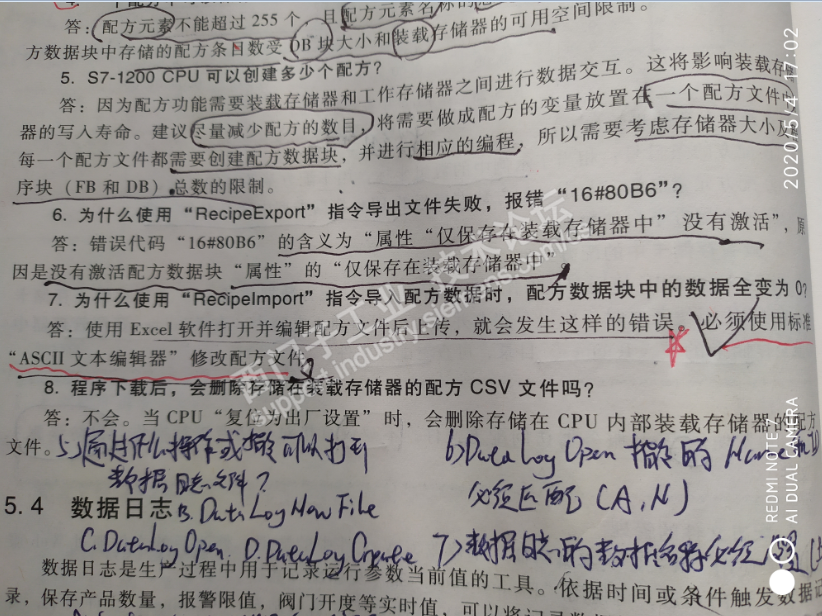 答：配方元素不能超过 255 个，且配方元素名称的
方数据块中存储的配方条目数受 DB 块大小和装载存储器的可用空间限制。
5. S7-1200 CPU 可以创建多少个配方？
答：因为配方功能需要装载存储器和工作存储器之间进行数据交互。这将影响装载存
器的写入寿命。建议尽量减少配方的数目，将需要做成配方的变量放置在一个配方文件
每一个配方文件都需要创建配方数据块，并进行相应的编程，所以需要考虑存储器大小及
序块（FB 和 DB）总数的限制。
6. 为什么使用“RecipeExport”指令导出文件失败，报错“16#80B6”？
答：错误代码“16#80B6”的含义为“属性“仅保存在装载存储器中”没有激活”，原
因是没有激活配方数据块“属性”的“仅保存在装载存储器中”。
7. 为什么使用“RecipeImport”指令导入配方数据时，配方数据块中的数据全变为 0？
答：使用 Excel 软件打开并编辑配方文件后上传，就会发生这样的错误。必须使用标准
“ASCII 文本编辑器”修改配方文件。
8. 程序下载后，会删除存储在装载存储器的配方 CSV 文件吗？
答：不会。当 CPU“复位为出厂设置”时，会删除存储在 CPU 内部装载存储器的配方
文件。5、通过什么操作或指令可以打开
数据日志文件？
6) DataLog Open 指令的
必须匹配 (A, N)
5.4 数据日志 B. DataLogNewFile
C. DataLogOpen D. DataLogCreate 7) 数据日志的数据名称必须
数据日志是生产过程中用于记录运行参数当前值的工具。依据时间或条件触发数据记
录，保存产品数量，报警限值，阀门开度等实时值，可以将记录数
西门子工业 技术论坛
support.industry.siemens.com/cs
2020/5/4 17:02
REDMI NOTE
AI DUAL CAMERA